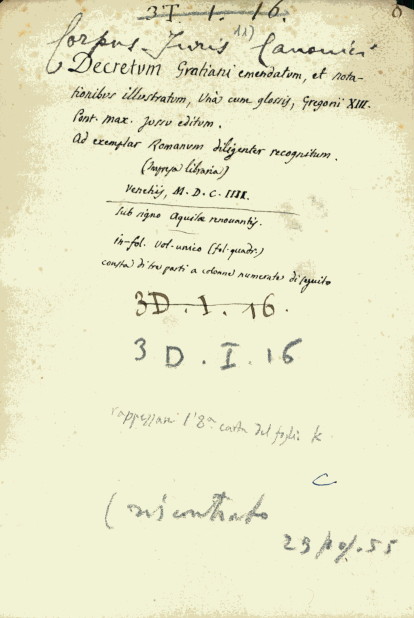 3T. 1. 16.
Corpus Juris Canonici
11)
Decretum Gratiani emendatum, et nota-
tionibus illustratum, Unà cum glossis, Gregorii XIII.
Pont. max. jussu editum.
Ad exemplar Romanum diligenter recognitum.
(Impresa libraria)
Venetijs, M.D.C.IIII.
Sub signo Aquilae renovantis.
in-fol. vol. unico (fol. quadr.)
consta di tre parti a colonne numerate di seguito
3D. 1. 16.
3 D. I. 16
rappezzare l'8a carta del foglio k
(riscontrato
23 55